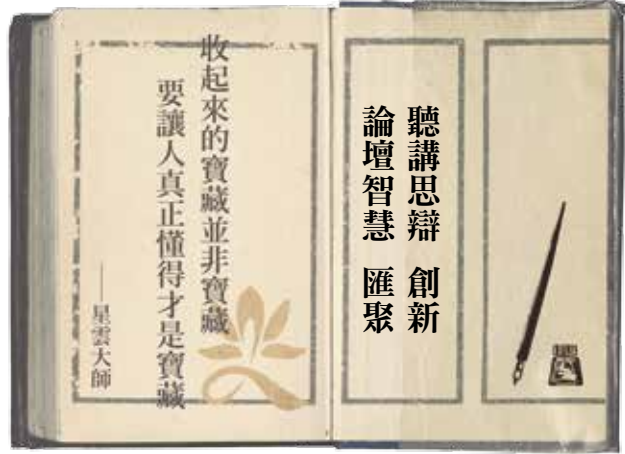 聽講思辯 創新
論壇智慧 匯聚
收起來的寶藏並非寶藏
要讓人真正懂得才是寶藏
——星雲大師